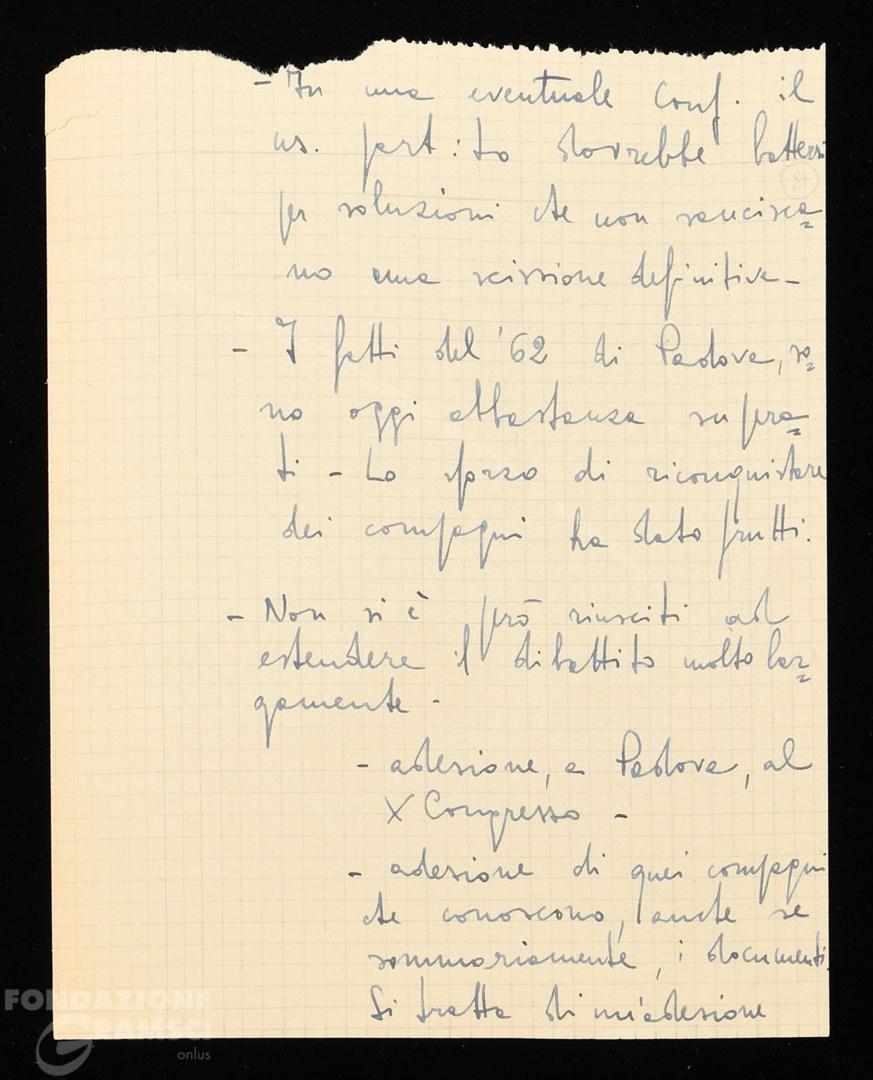 - In una eventuale Conf. il
ns. partito dovrebbe battersi
per soluzioni che non sancisca=
no una scissione definitiva -
- I fatti del '62 di Padova, so=
no oggi abbastanza supera=
ti - Lo sforzo di riconquistare
dei compagni ha dato frutti.
- Non si è però riusciti ad
estendere il dibattito molto lar=
gamente -
- adesione, a Padova, al
X Congresso -
- adesione di quei compagni
che conoscono, anche se
sommariamente, i documenti.
Si tratta di un'adesione
FONDAZIONE
GRAMSCI
onlus